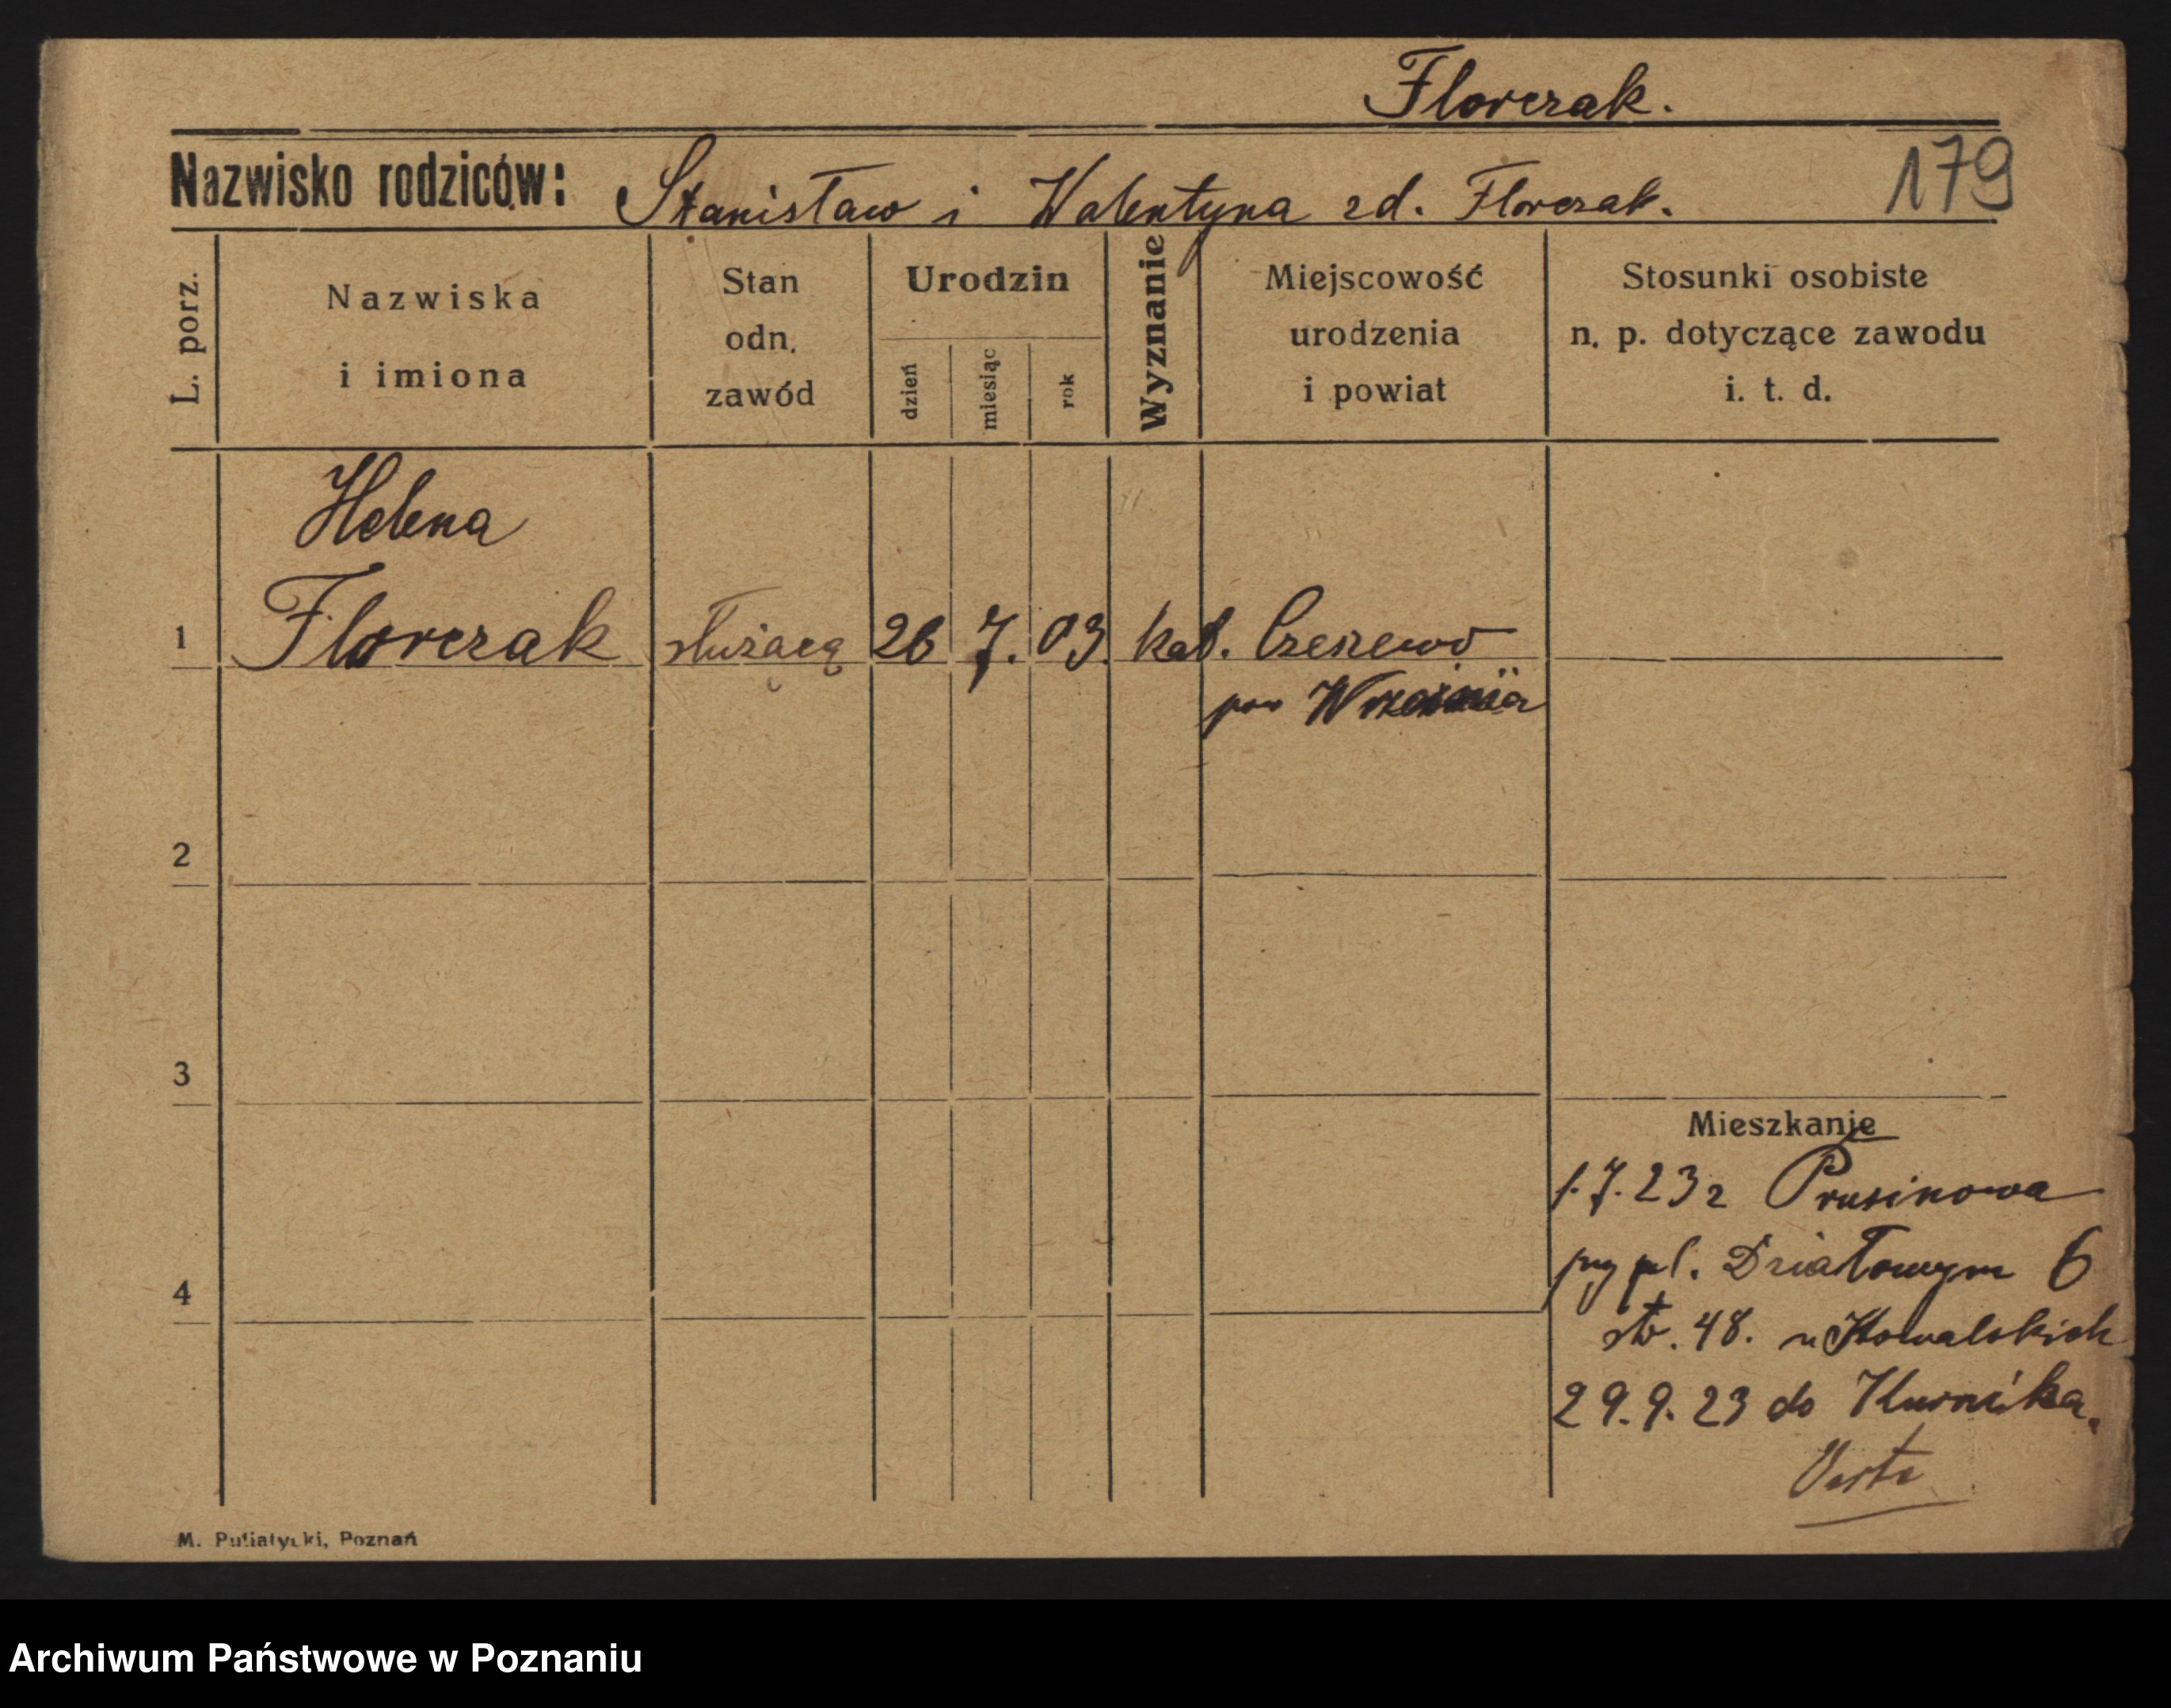 Florczak.
Nazwisko rodziców: Stanisław i Walentyna zd. Florczak.
179
L. porz.
Nazwiska
i imiona
Stan
odn.
zawód
Urodzin
dzień
miesiąc
rok
Wyznanie
Miejscowość
urodzenia
i powiat
Stosunki osobiste
n. p. dotyczące zawodu
i. t. d.
Helena
1 Florczak służącą 26 7. 03. kat. Czeszewo
pow Września
2
3
4
Mieszkanie
1.7.23 z Prusinowa
przy pl. Działowym 6
str. 48. u Kowalskich
29.9.23 do Kurnika.
M. Putiatycki, Poznań
Archiwum Państwowe w Poznaniu